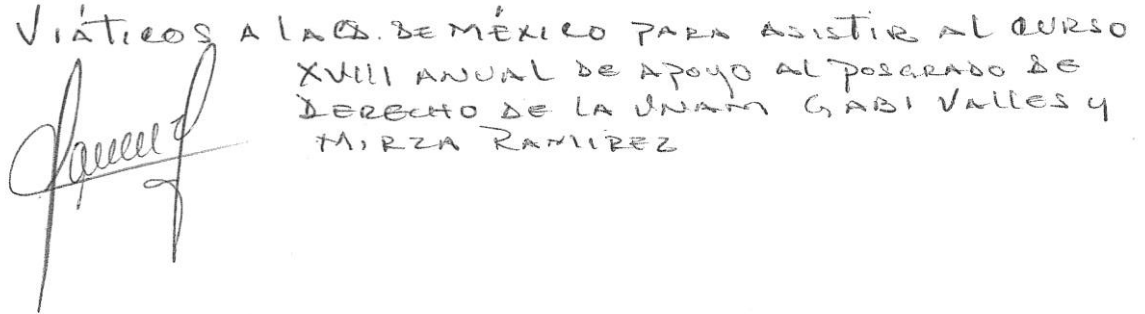 VIÁTICOS A LA CD. DE MÉXICO PARA ASISTIR AL CURSO
XVIII ANUAL DE APOYO AL POSGRADO DE
DERECHO DE LA UNAM GABI VALLES Y
MIRZA RAMIREZ